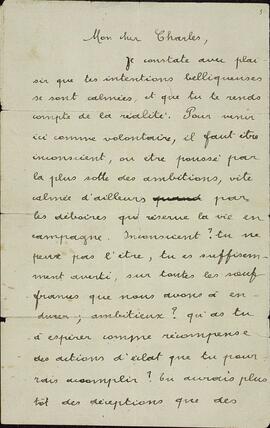 Mon cher Charles,
Je constate avec plai
sir que tes intentions belliqueuses
se sont calmées, et que tu te rends
compte de la réalité. Pour venir
ici comme volontaire, il faut être
inconscient, ou être poussé par
la plus sotte des ambitions, vite
calmée d'ailleurs quand par
les déboires que réserve la vie en
campagne. Inconscient? tu ne
peux pas l'être, tu es suffisem-
ment averti, sur toutes les souf-
frances que nous avons à en
durer; ambitieux? qu'as tu
à espérer comme récompense
des actions d'éclat que tu pour
rais accomplir? Tu aurais plus
tôt des déceptions que des